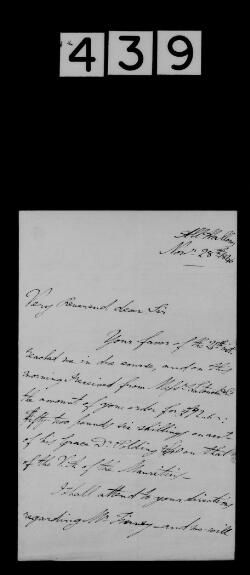 439
All Hallows
Novr. 28th 1846
Very Reverend dear Sir
Your favor of the 20th inst.
reached me in due course, and on this
morning I received from Messrs
the amount of your order for
fifty two pounds six shillings on acct.
of his Grace Dr. Polding and on that
of the V. A. of the Mauritius—
I shall attend to your directions
regarding Mr. Tierney—and we will